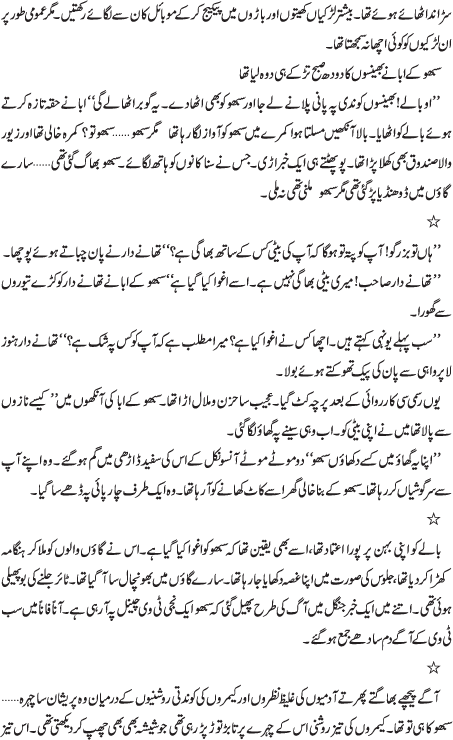 سڑاند اٹھائے ہوئے تھا۔ بیشتر لڑکیاں کھیتوں اور باڑوں میں پیکیج کر کے موبائل کان سے لگائے رکھتیں۔ مگر عمومی طور پر
ان لڑکیوں کو کوئی اچھا نہ سمجھتا تھا۔
سبھو کے ابا نے بھینسوں کا دودھ صبح تڑکے ہی دوہ لیا تھا
’’او بالے! بھینسوں کو ندی پہ پانی پلانے لے جا اور سبھو کو بھی اٹھا دے۔ یہ گوبر اٹھا لے گی‘‘ ابا نے حقہ تازہ کرتے
ہوئے بالے کو اٹھایا۔ بالا آنکھیں مسلتا ہوا کمرے میں سبھو کو آواز لگا رہا تھا مگر سبھو...... سبھو تو؟ کمرہ خالی تھا اور زیور
والا صندوق بھی کھلا پڑا تھا۔ پو پھٹتے ہی ایک خبر اڑی۔ جس نے سنا کانوں کو ہاتھ لگائے۔ سبھو بھاگ گئی تھی...... سارے
گاؤں میں ڈھونڈیا پڑ گئی تھی مگر سبھو ملنی تھی نہ ملی۔
☆
’’ہاں تو بزرگو! آپ کو پتہ تو ہوگا کہ آپ کی بیٹی کس کے ساتھ بھاگی ہے؟‘‘ تھانے دار نے پان چباتے ہوئے پوچھا۔
’’تھانے دار صاحب! میری بیٹی بھاگی نہیں ہے۔ اسے اغوا کیا گیا ہے‘‘ سبھو کے ابا نے تھانے دار کو کڑے تیوروں
سے گھورا۔
’’سب پہلے یونہی کہتے ہیں۔ اچھا کس نے اغوا کیا ہے؟ میرا مطلب ہے کہ آپ کو کس پہ شک ہے؟‘‘ تھانے دار ہنوز
لا پرواہی سے پان کی پیک تھوکتے ہوئے بولا۔
یوں رسمی سی کارروائی کے بعد پرچہ کٹ گیا۔ عجیب سا حزن و ملال اڑا تھا۔ سبھو کے ابا کی آنکھوں میں’’ کیسے نازوں
سے پالا تھا میں نے اپنی بیٹی کو۔ اب وہی سینے پہ گھاؤ لگا گئی۔
’’اپنا یہ گھاؤ میں کسے دکھاؤں سبھو‘‘ دو موٹے موٹے آنسو نکل کے اس کی سفید ڈاڑھی میں گم ہو گئے۔ وہ اپنے آپ
سے سرگوشیاں کر رہا تھا۔ سبھو کے بنا خالی گھر اسے کاٹ کھانے کو آ رہا تھا۔ وہ ایک طرف چارپائی پہ ڈھے سا گیا۔
☆
بالے کو اپنی بہن پر پورا اعتماد تھا، اسے بھی یقین تھا کہ سبھو کو اغوا کیا گیا ہے۔ اس نے گاؤں والوں کو ملا کر ہنگامہ
کھڑا کر دیا تھا، جلوس کی صورت میں اپنا غصہ دکھایا جا رہا تھا۔ سارے گاؤں میں بھونچال سا آ گیا تھا۔ ٹائر جلنے کی بو پھیلی
ہوئی تھی۔ اتنے میں ایک خبر جنگل میں آگ کی طرح پھیل گئی کہ سبھو ایک نجی ٹی وی چینل پہ آ رہی ہے۔ آناً فاناً میں سب
ٹی وی کے آگے دم سادھے جمع ہو گئے۔
☆
آگے پیچھے بھاگتے پھرتے آدمیوں کی غلیظ نظروں اور کیمروں کی کوندتی روشنیوں کے درمیان وہ پریشان سا چہرہ......
سبھو کا ہی تو تھا۔ کیمروں کی تیز روشنی اس کے چہرے پر تابڑ توڑ پڑ رہی تھی جو شیشہ بھی بھی چھپ کر دیکھتی تھی۔ اس تیز